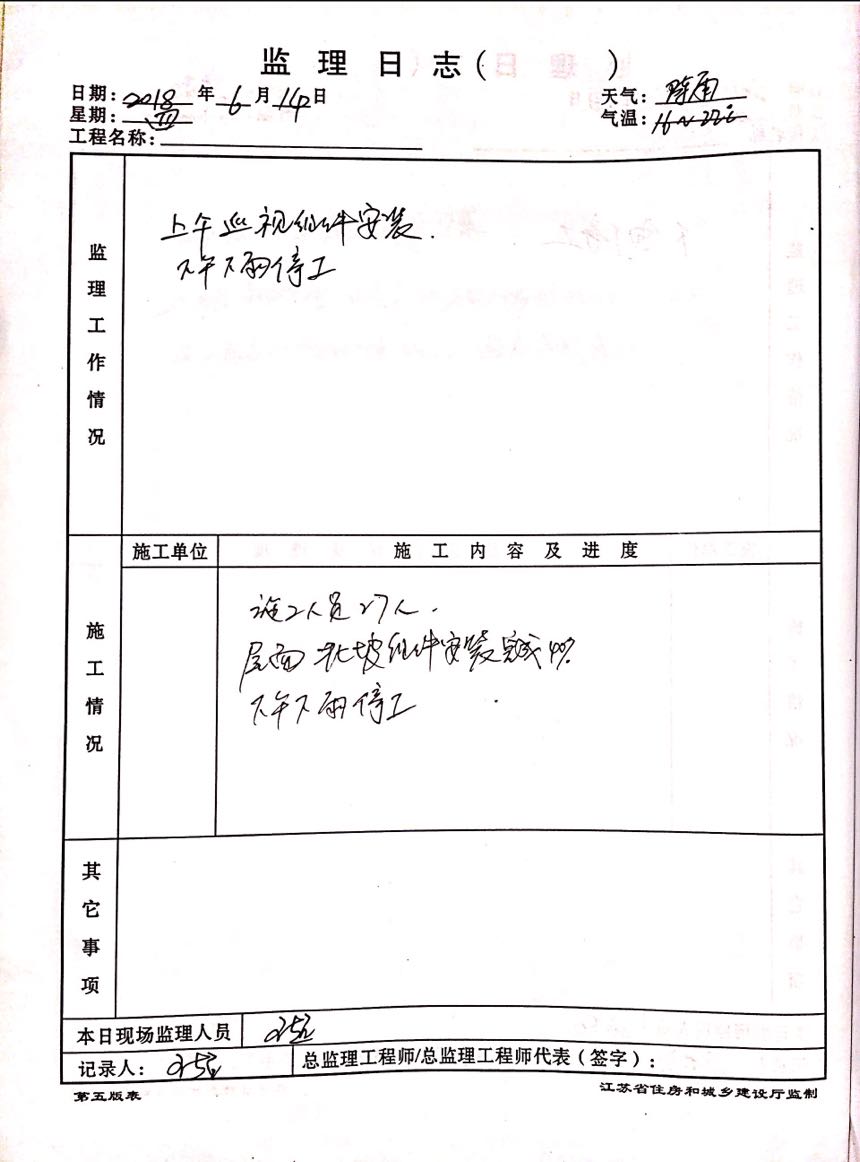 监理日志（　　）
日期：2018年6月14日
天气：阵雨
星期：四
气温：16~22℃
工程名称：
监理工作情况
上午巡视组件安装.
下午下雨停工
施工单位
施工内容及进度
施工情况
施工人员27人.
屋面北坡组件安装完成
下午下雨停工
其它事项
本日现场监理人员
记录人：
总监理工程师/总监理工程师代表（签字）：
第五版表
江苏省住房和城乡建设厅监制